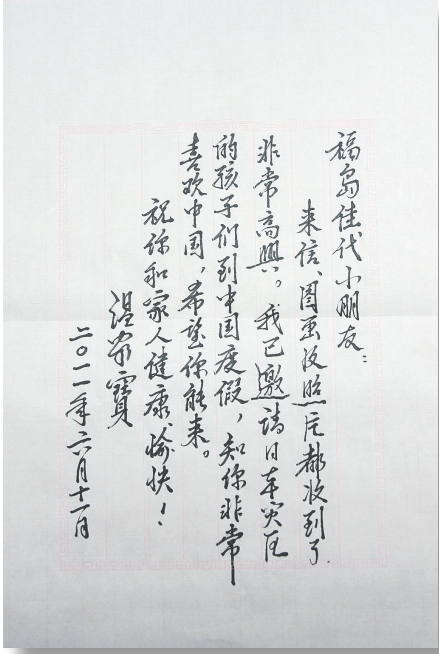 福岛佳代小朋友：
来信、图画及照片都收到了
非常高興。我已邀请日本灾区
的孩子们到中国度假，知你非常
喜欢中国，希望你能来。
祝你和家人健康、愉快！
温家寳
二〇一一年六月十一日